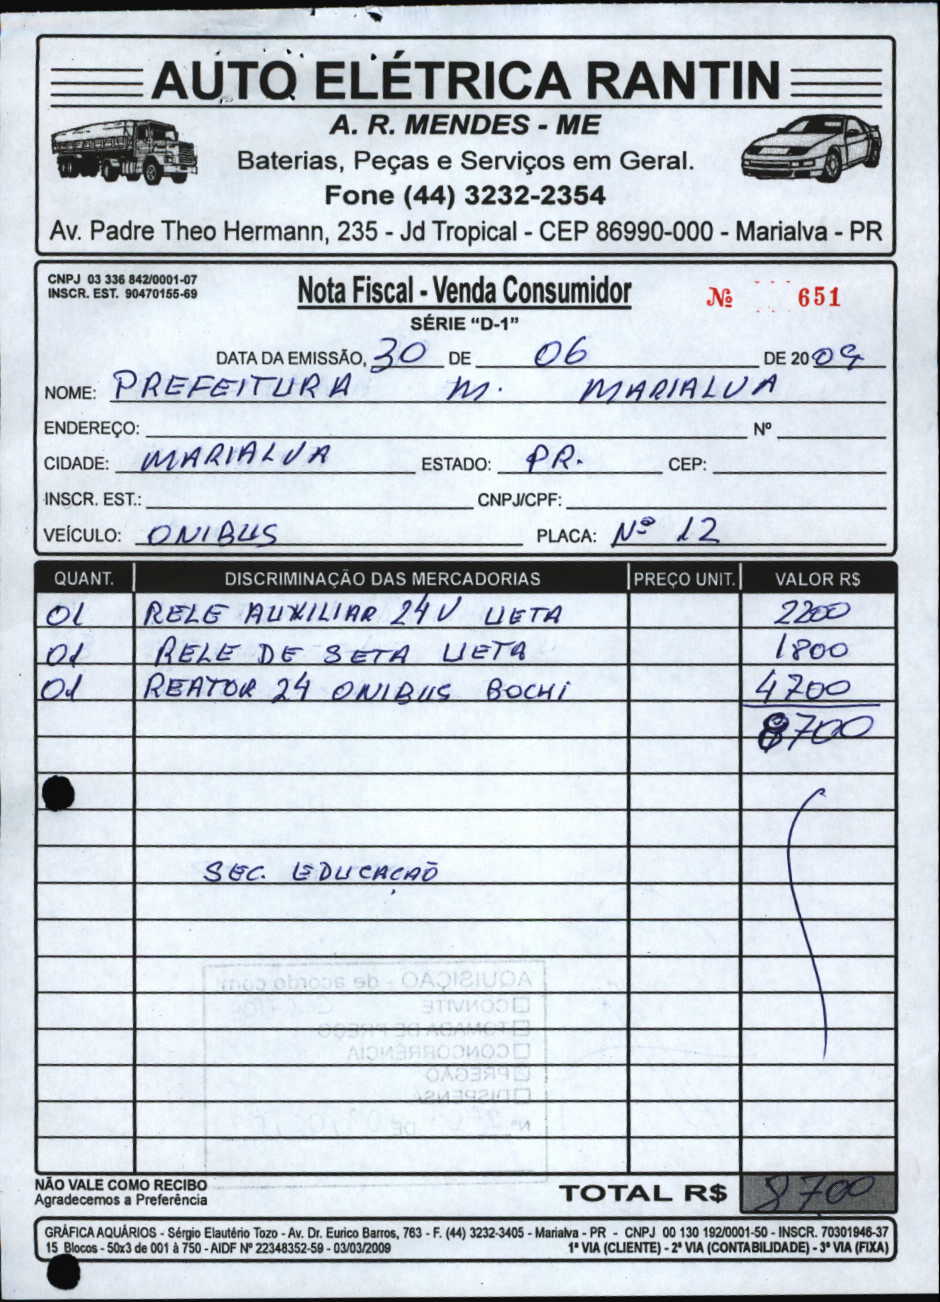 AUTO ELÉTRICA RANTIN
A. R. MENDES - ME
Baterias, Peças e Serviços em Geral.
Fone (44) 3232-2354
Av. Padre Theo Hermann, 235 - Jd Tropical - CEP 86990-000 - Marialva - PR
CNPJ 03 336 842/0001-07
INSCR. EST. 90470155-69
Nota Fiscal - Venda Consumidor
SÉRIE “D-1”
Nº 651
DATA DA EMISSÃO, 30 DE 06 DE 2009
NOME: PREFEITURA M. MARIALVA
ENDEREÇO: Nº
CIDADE: MARIALVA ESTADO: PR. CEP:
INSCR. EST.: CNPJ/CPF:
VEÍCULO: ONIBUS PLACA: Nº 12
QUANT. DISCRIMINAÇÃO DAS MERCADORIAS PREÇO UNIT. VALOR R$
01 RELE AUXILIAR 24V UETA 2200
01 RELE DE SETA UETA 1800
01 REATOR 24 ONIBUS BOCHI 4700
8700
SEC. EDUCACAÕ
AQUISIÇÃO - de acordo com:
CONVITE
TOMADA DE PREÇO
CONCORRÊNCIA
PREGÃO
DISPENSA
Nº DE
NÃO VALE COMO RECIBO
Agradecemos a Preferência
TOTAL R$ 8700
GRÁFICA AQUÁRIOS - Sérgio Elautério Tozo - Av. Dr. Eurico Barros, 763 - F. (44) 3232-3405 - Marialva - PR - CNPJ 00 130 192/0001-50 - INSCR. 70301946-37
15 Blocos - 50x3 de 001 à 750 - AIDF Nº 22348352-59 - 03/03/2009 1ª VIA (CLIENTE) - 2ª VIA (CONTABILIDADE) - 3ª VIA (FIXA)